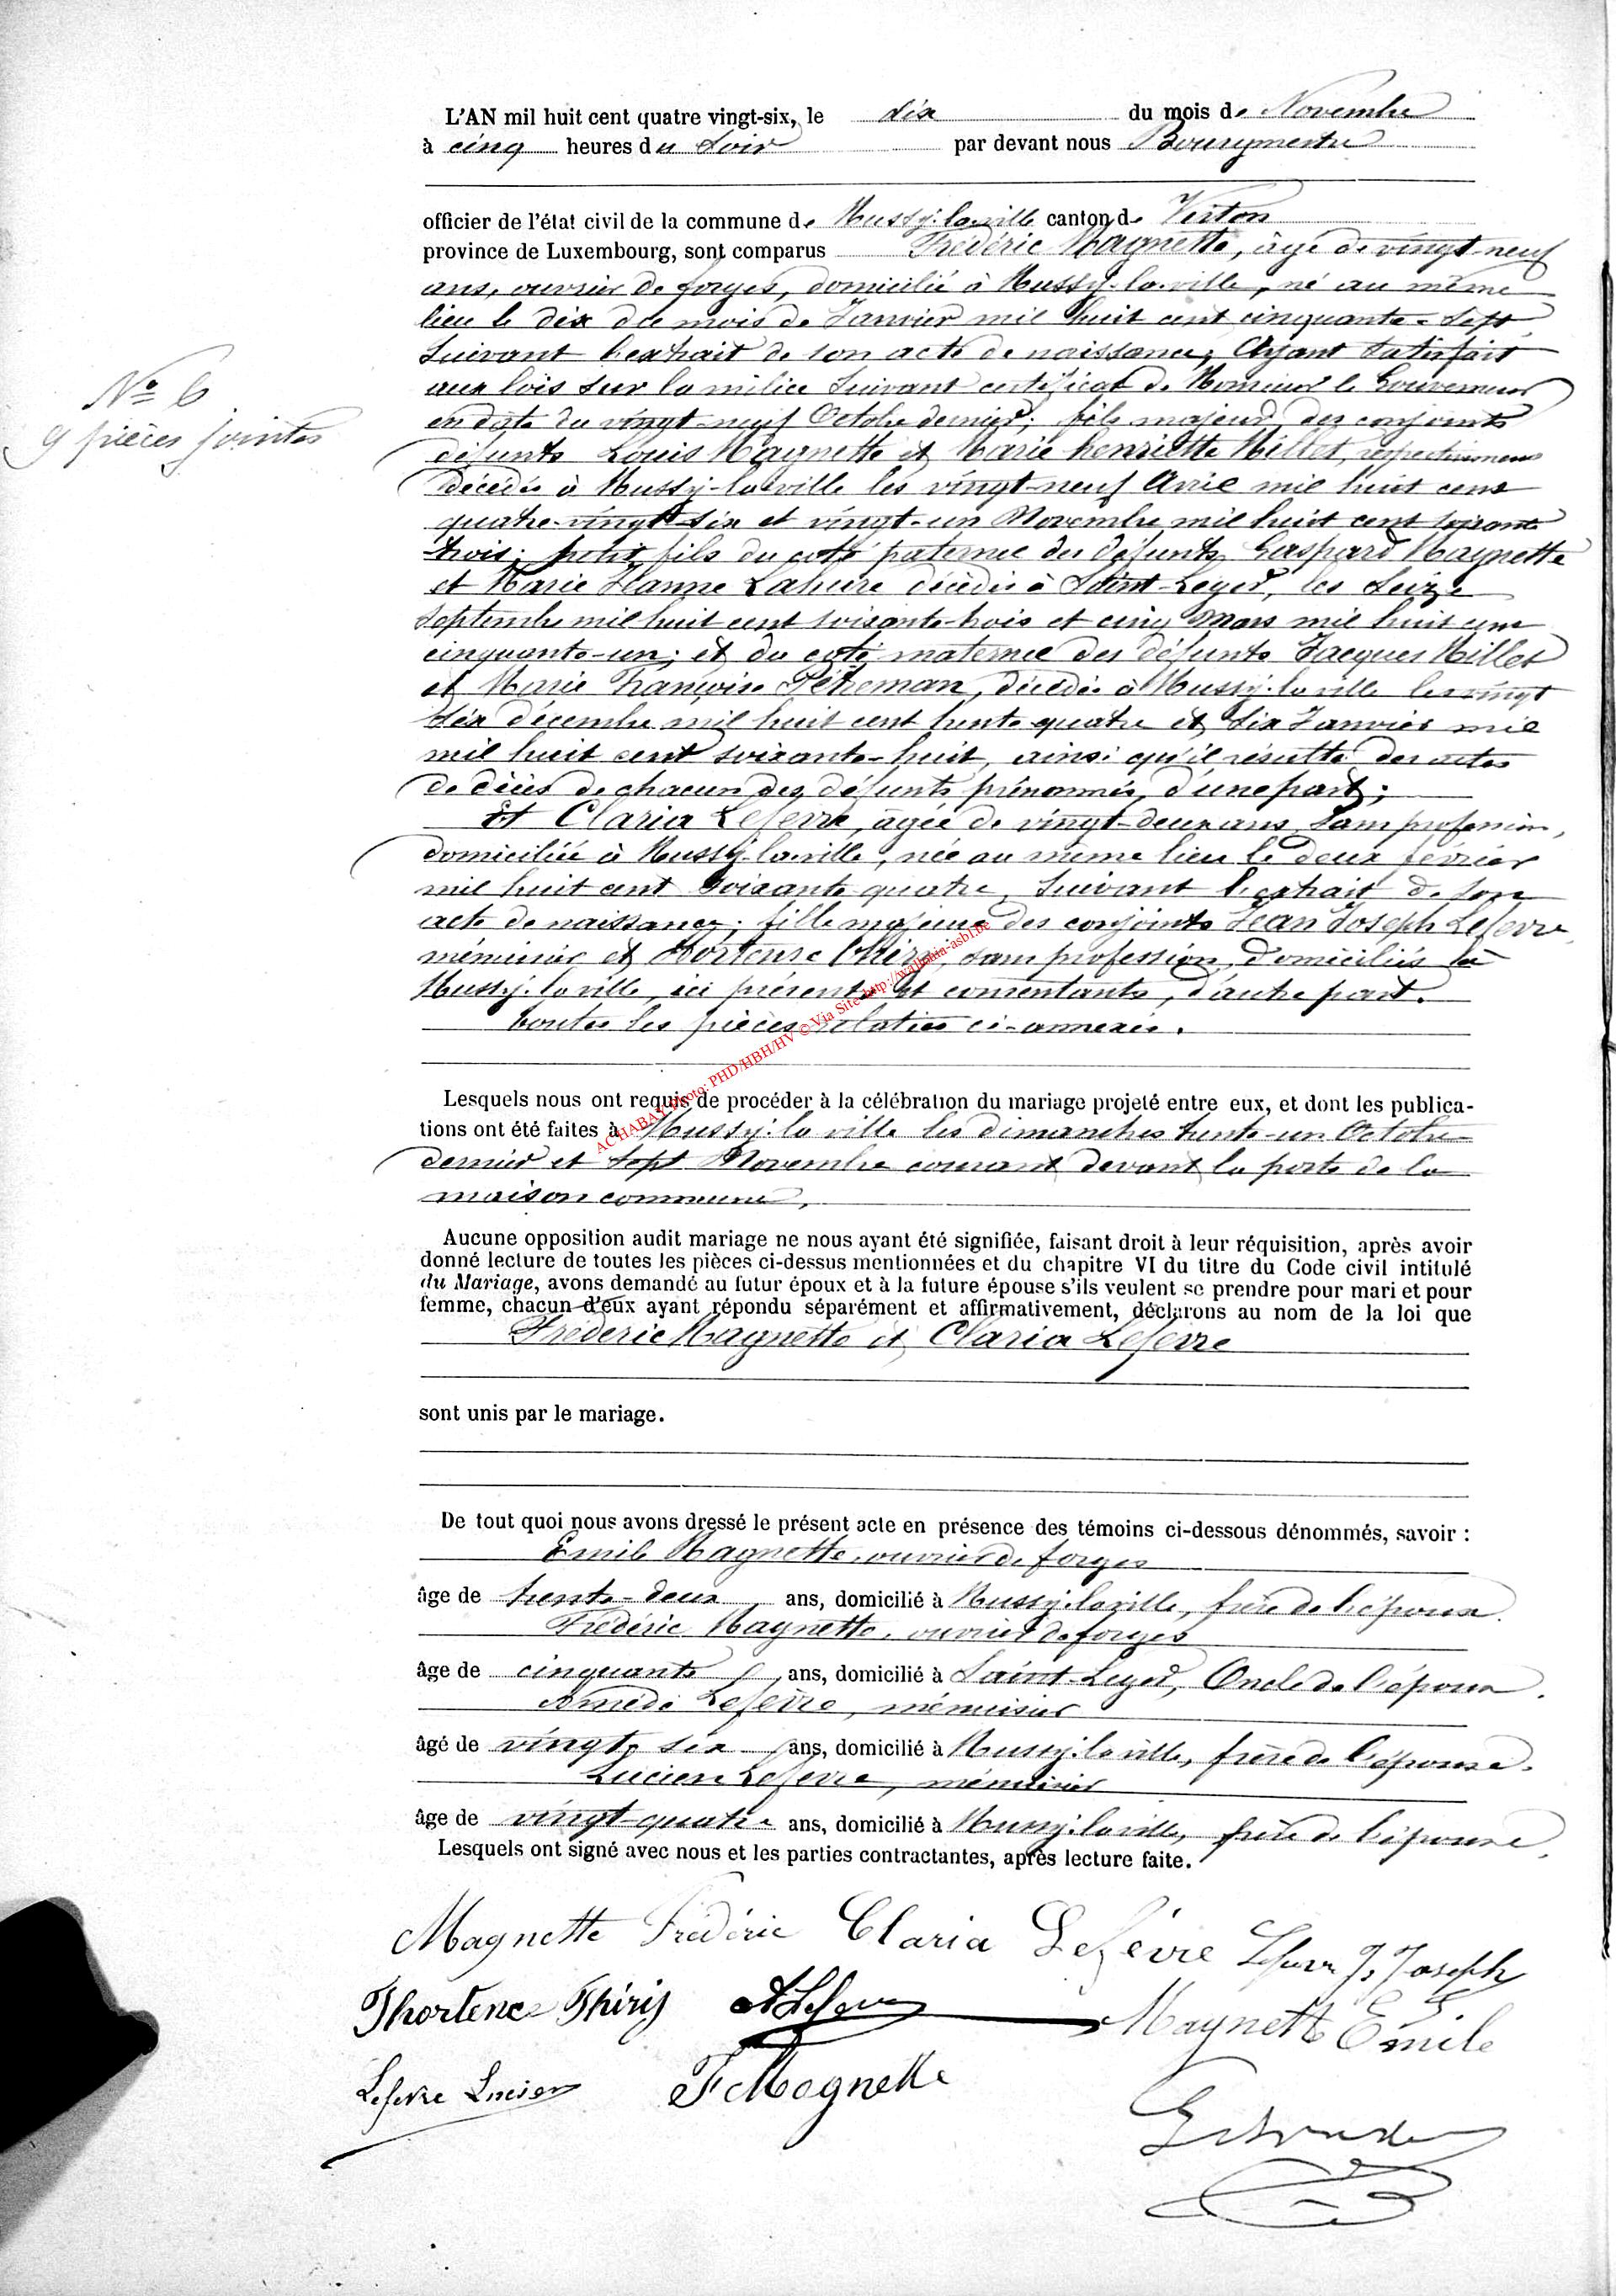 L'AN mil huit cent quatre vingt-six, le dix du mois de Novembre
à cinq heures du soir par devant nous Bourgmestre
officier de l'état civil de la commune de Mussy-la-ville canton de Virton
province de Luxembourg, sont comparus Frédéric Magnette, âgé de vingt-neuf
ans, ouvrier de forges, domicilié à Mussy-la-ville, né au même
lieu le dix du mois de Janvier mil huit cent cinquante-sept
suivant l'extrait de son acte de naissance, Ayant satisfait
aux lois sur la milice suivant certificat de Monsieur le Gouverneur
en date du vingt-neuf Octobre dernier; fils majeur des conjoints
N° 6
9 pièces jointes
défunts Louis Magnette et Marie henriette Millet, respectivement
décédés à Mussy-la-ville les vingt-neuf Avril mil huit cent
quatre-vingt-six et vingt-un Novembre mil huit cent soixante
trois; petit fils du coté paternel des défunts Gaspard Magnette
et Marie Jeanne Lahure décédés à Saint-Léger, les seize
septembre mil huit cent soixante-trois et cinq Mars mil huit cent
cinquante-un; et du coté maternel des défunts Jacques Millet
et Marie Françoise Pétreman, décédés à Mussy-la-ville les vingt
six décembre mil huit cent trente quatre et six Janvier mil
mil huit cent soixante-huit, ainsi qu'il résulte des actes
de décès de chacun des défunts prénommés, d'une part;
Et Claria Lefevre, âgée de vingt-deux ans, sans profession,
domiciliée à Mussy-la-ville, née au même lieu le deux février
mil huit cent soixante quatre, suivant l'extrait de son
acte de naissance; fille majeure des conjoints Jean Joseph Lefevre,
ménuisier et Hortense Thiry, sans profession, domiciliés à
Mussy-la-ville, ici présents et consentants, d'autre part.
toutes les pièces relatées ci-annexées.
AC HABAY Photo: PHD/HBH/HV © Via Site http://wallonia-asbl.be
Lesquels nous ont requis de procéder à la célébration du mariage projeté entre eux, et dont les publica-
tions ont été faites à Mussy-la-ville les dimanches trente-un Octobre
dernier et sept Novembre courant devant la porte de la
maison commune,
Aucune opposition audit mariage ne nous ayant été signifiée, faisant droit à leur réquisition, après avoir
donné lecture de toutes les pièces ci-dessus mentionnées et du chapitre VI du titre du Code civil intitulé
du Mariage, avons demandé au futur époux et à la future épouse s'ils veulent se prendre pour mari et pour
femme, chacun d'eux ayant répondu séparément et affirmativement, déclarons au nom de la loi que
Frédéric Magnette et Claria Lefevre
sont unis par le mariage.
De tout quoi nous avons dressé le présent acte en présence des témoins ci-dessous dénommés, savoir :
Emile Magnette, ouvrier de forges
âgé de trente-deux ans, domicilié à Mussy-la-ville, frère de l'époux.
Frédéric Magnette, ouvrier de forges
âgé de cinquante ans, domicilié à Saint-Léger, Oncle de l'époux.
Amédé Lefevre, ménuisier
âgé de vingt-six ans, domicilié à Mussy-la-ville, frère de l'épouse.
Lucien Lefevre, ménuisier
âgé de vingt-quatre ans, domicilié à Mussy-la-ville, frère de l'épouse.
Lesquels ont signé avec nous et les parties contractantes, après lecture faite.
Magnette Frédéric Claria Lefèvre Lefevre J, Joseph
Thortence Thiry ALefevre Magnette Emile
Lefevre Lucien F Magnette